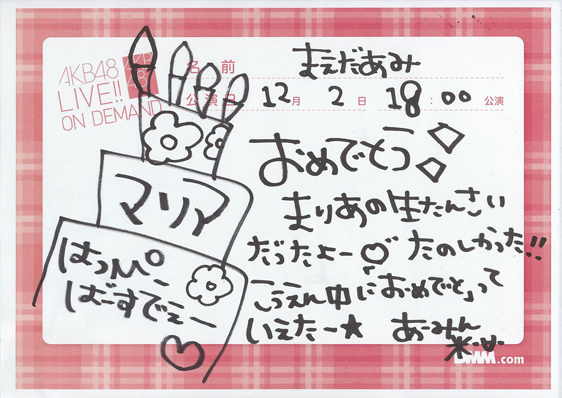 AKB48
LIVE!!
ON DEMAND
AKB
48
名前 まえだあみ
公演日 12月 2日 18:00 公演
おめでとう
まりあの生たんさい
だったよー♡ たのしかった!!
こうえん中に「おめでと」って
いえたー★ あーみん
マリア
はっぴー
ばーすでぇー
DMM.com